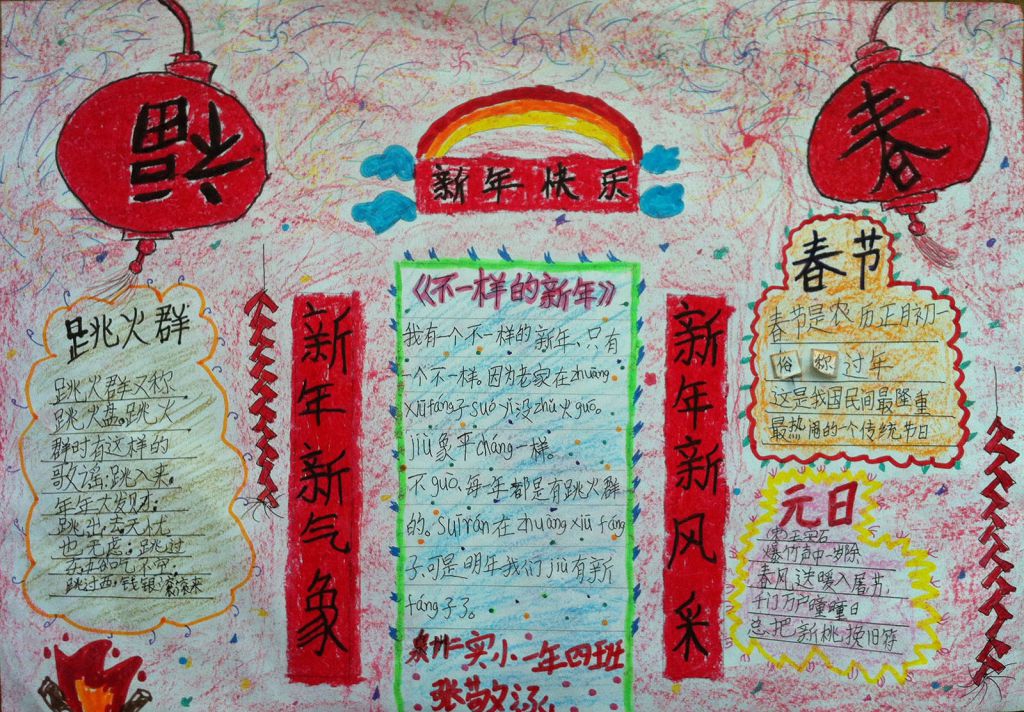 福
春
新年快乐
跳火群
跳火群又称
跳火盆。跳火
群时有这样的
歌谣:跳入来,
年年大发财;
跳出去,去无忧
也无虑;跳过
东,五谷吃不空,
跳过西,钱银滚滚来
新年新气象
《不一样的新年》
我有一个不一样的新年、只有
一个不一样。因为老家在zhuāng
xiū fáng子suó yǐ没zhǔ火guō。
jiù象平cháng一样。
不guò、每一年都是有跳火群
的。suī rán在zhuāng xiū fáng
子、可是明年我们jiù有新
fáng子了。
泉州仁实小一年四班
张敬泳
新年新风采
春节
春节是农历正月初一
俗称过年
这是我国民间最隆重
最热闹的一个传统节日
元日
宋王安石
爆竹声中一岁除
春风送暖入屠苏,
千门万户曈曈日
总把新桃换旧符